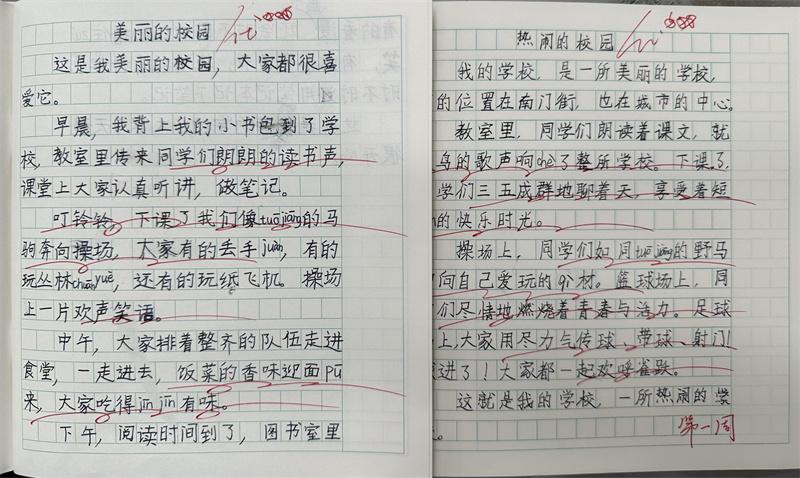 美丽的校园
这是我美丽的校园，大家都很喜
爱它。
早晨，我背上我的小书包到了学
校，教室里传来同学们朗朗的读书声，
课堂上大家认真听讲，做笔记。
叮铃铃，下课了我们像tuō jiāng的马
驹奔向操场，大家有的丢手juàn，有的
玩丛林chuānyuè，还有的玩纸飞机。操场
上一片欢声笑语。
中午，大家排着整齐的队伍走进
食堂，一走进去，饭菜的香味迎面pū
来，大家吃得jīn jīn有味。
下午，阅读时间到了，图书室里
热闹的校园
我的学校，是一所美丽的学校，
的位置在南门街，也在城市的中心。
教室里，同学们朗读着课文，就
鸟的歌声响chè了整所学校。下课了，
学们三五成群地聊着天，享受着短
的快乐时光。
操场上，同学们如同tuō jiāng的野马
向自己爱玩的qì材。篮球场上，同
们尽情地燃烧着青春与活力。足球
上，大家用尽力气传球、带球、射门！
进了！大家都一起欢呼雀跃。
这就是我的学校，一所热闹的学
第一周